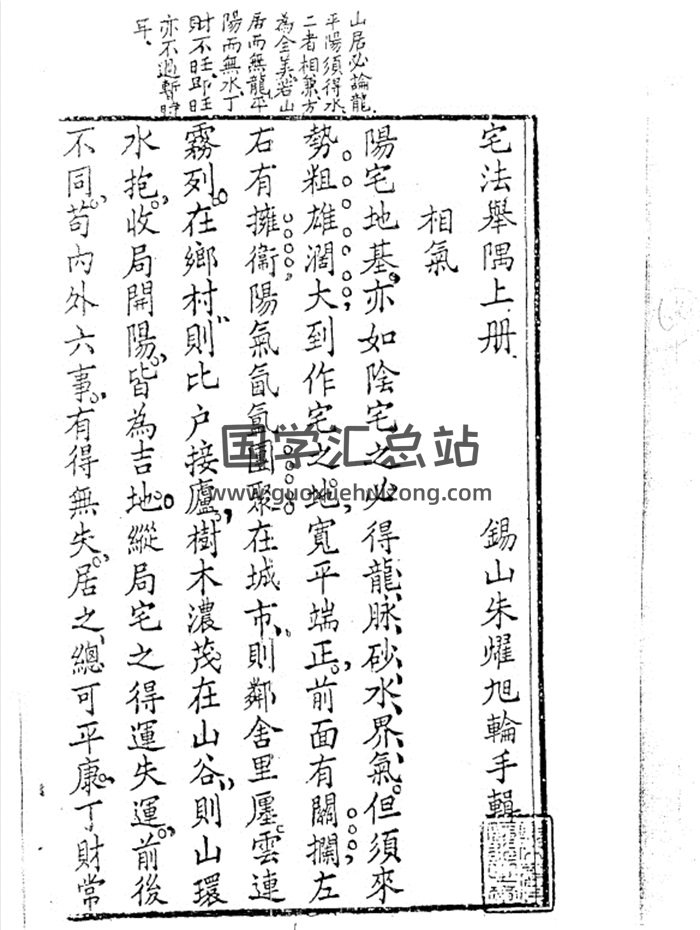 山居必論龍
平陽須得水
二者相兼方
為全美若山
居而無龍平
陽而無水丁
財不旺即旺
亦不過暫時
耳
宅法舉隅上册
錫山朱燿旭輪手輯
相氣
陽宅地基亦如陰宅之必得龍脉砂水界氣但須來
勢粗雄濶大到作宅之地寬平端正前面有關攔左
右有擁衞陽氣氤氲團聚在城市則鄰舍里廛雲連
霧列在鄉村則比户接廬樹木濃茂在山谷則山環
水抱收局開陽皆為吉地縱局宅之得運失運前後
不同苟內外六事有得無失居之總可平康丁財常
国学汇总站
www.guoxuehuizong.com